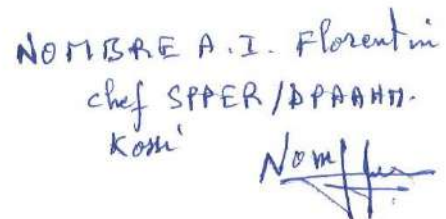 NOMBRE A.I. Florentin
chef SPPER/DPAAHM.
Kossi